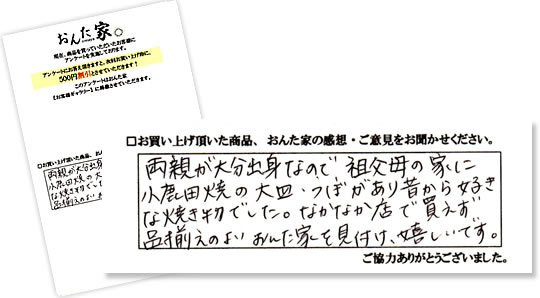 おんた家
現在、商品を買っていただいたお客様に
アンケートを実施しております。
アンケートにお答え頂きますと、次回お買い上げ時に、
500円割引とさせていただきます！
このアンケートはおんた家
【お客様ギャラリー】に掲載させていただきます。
□お買い上げ頂いた商品、おん
両親が大分出身
小鹿田焼の大
な焼き物でした
品揃えのよいお
□お買い上げ頂いた商品、おんた家の感想・ご意見をお聞かせください。
両親が大分出身なので祖父母の家に
小鹿田焼の大皿・つぼがあり昔から好き
な焼き物でした。なかなか店で買えず
品揃えのよいおんた家を見付け、嬉しいです。
ご協力ありがとうございました。